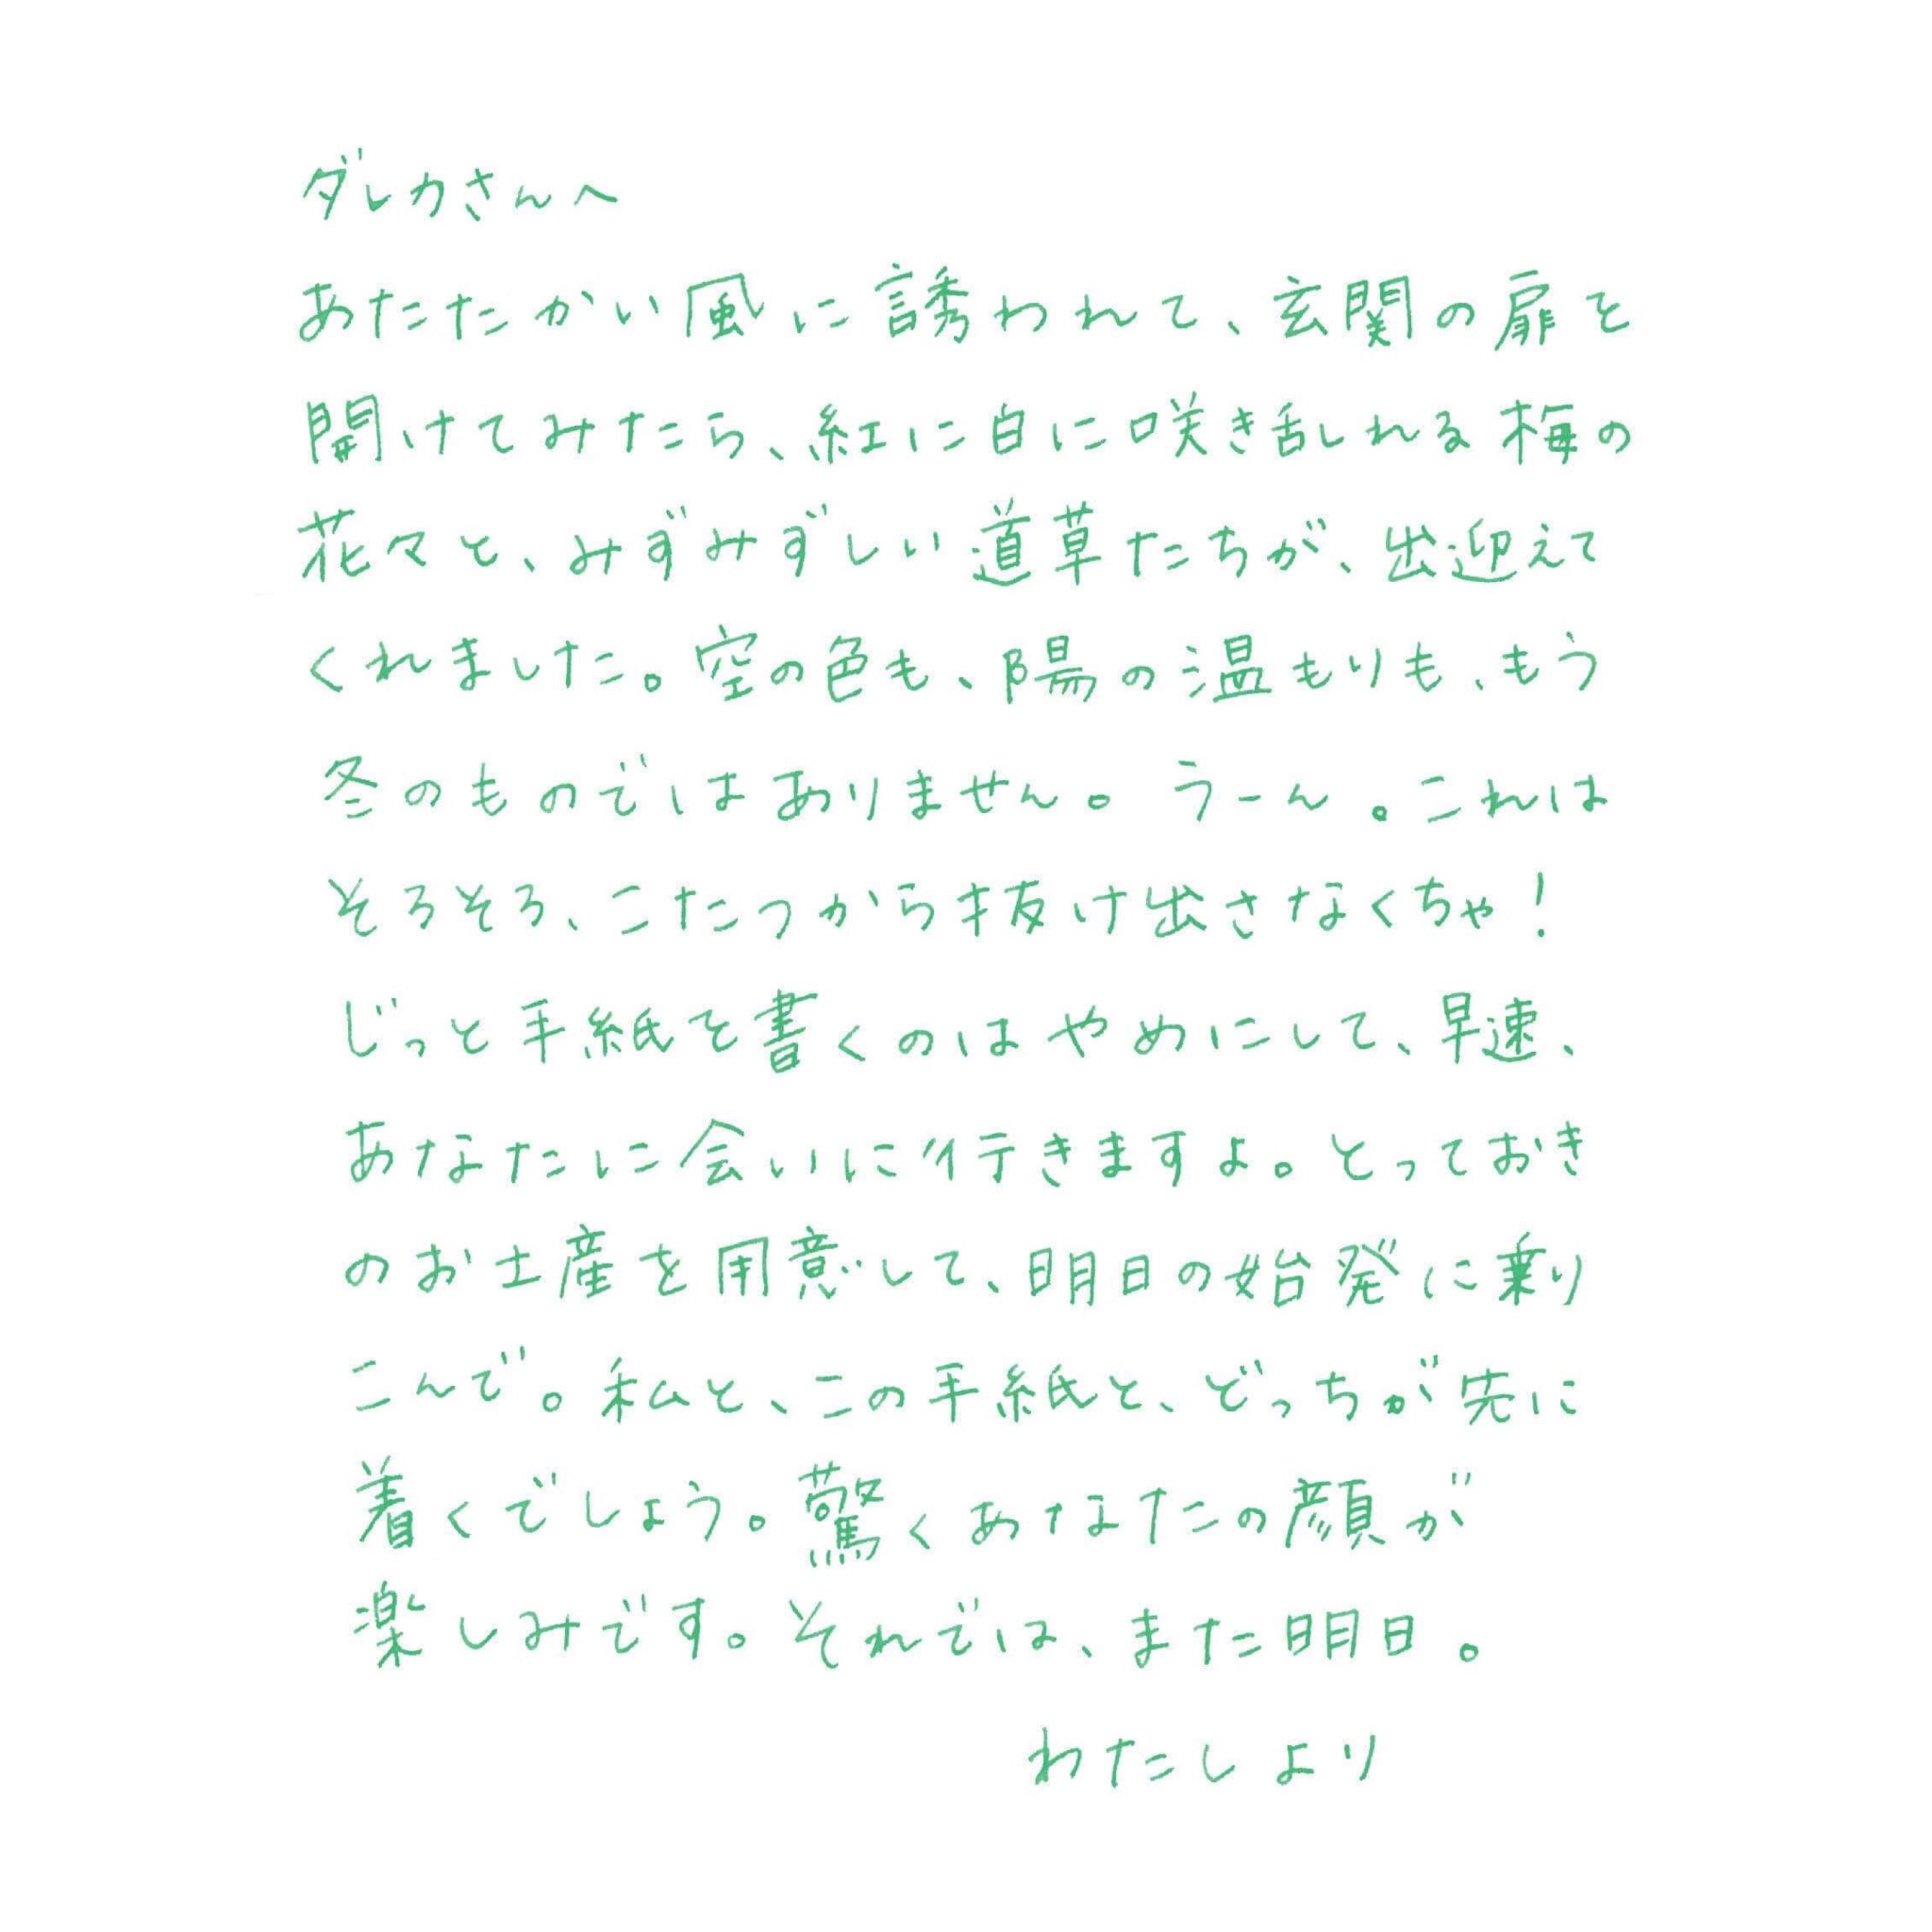 ダレカさんへ
あたたかい風に誘われて、玄関の扉を
開けてみたら、紅に白に咲き乱れる梅の
花々と、みずみずしい道草たちが、出迎えて
くれました。空の色も、陽の温もりも、もう
冬のものではありません。うーん。これは
そろそろ、こたつから抜け出さなくちゃ！
じっと手紙を書くのはやめにして、早速、
あなたに会いに行きますよ。とっておき
のお土産を用意して、明日の始発に乗り
こんで。私と、この手紙と、どっちが先に
着くでしょう。驚くあなたの顔が
楽しみです。それでは、また明日。
わたしより